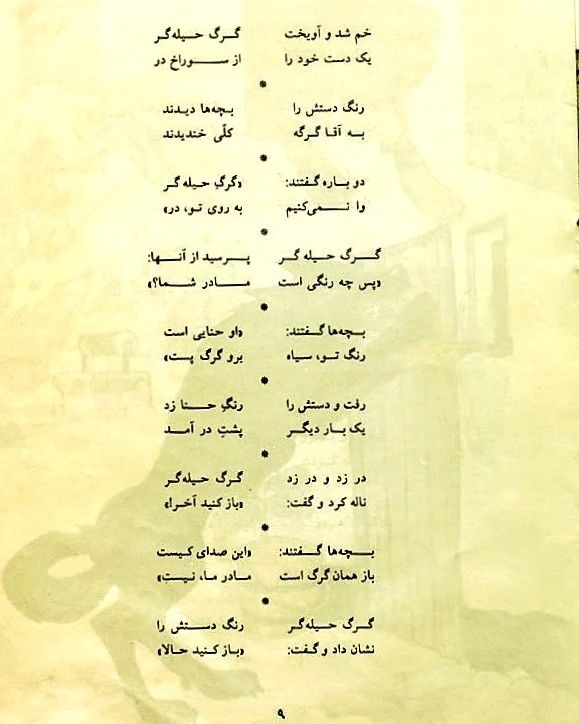 خم شد و آویخت گرگ حیله‌گر
یک دست خود را از سوراخ در
*
رنگ دستش را بچه‌ها دیدند
به آقا گرگه کلّی خندیدند
*
دو باره گفتند: «گرگِ حیله گر
وا نمی‌کنیم به روی تو، در»
*
گرگ حیله گر پرسید از آنها:
«پس چه رنگی است مادر شما؟»
*
بچه‌ها گفتند: «او حنایی است
رنگ تو، سیاه برو گرگ پست»
*
رفت و دستش را رنگِ حنا زد
یک بار دیگر پشتِ در آمد
*
در زد و در زد گرگ حیله‌گر
ناله کرد و گفت: «باز کنید آخر!»
*
بچه‌ها گفتند: «این صدای کیست
باز همان گرگ است مادر ما، نیست»
*
گرگ حیله‌گر رنگ دستش را
نشان داد و گفت: «باز کنید حالا»
۹